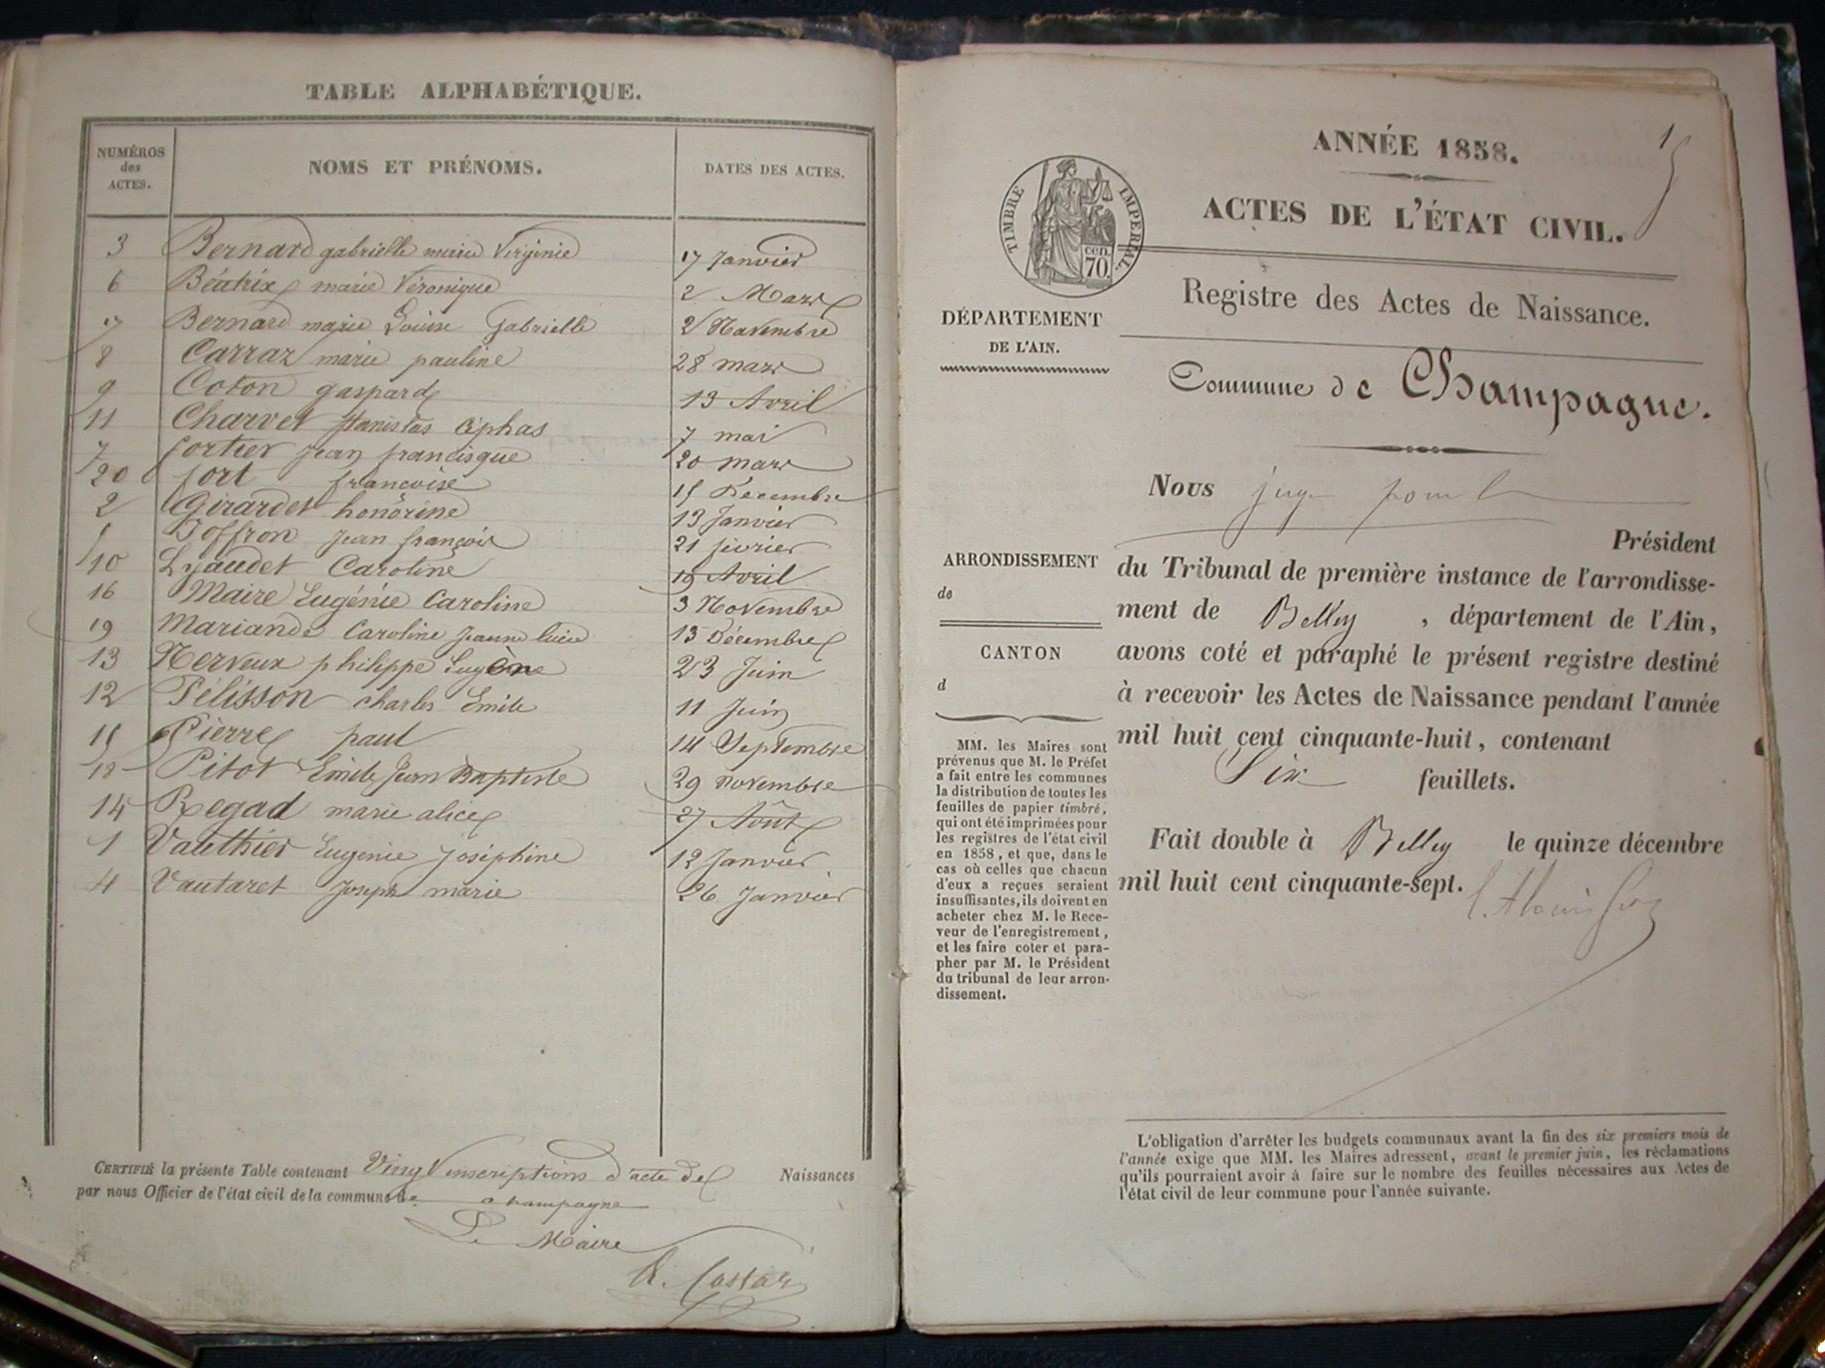 TABLE ALPHABÉTIQUE.
NUMÉROS des ACTES. NOMS ET PRÉNOMS. DATES DES ACTES.
3 Bernard gabrielle marie Virginie 17 Janvier
6 Béatrix marie Véronique 2 Mars
17 Bernard marie Louise Gabrielle 2 Novembre
8 Carraz marie pauline 28 mars
9 Coton gaspard 13 Avril
11 Charvet Stanislas Céphas 7 mai
7 fortier jean francisque 20 mars
20 fort francoise 15 Décembre
2 Girardet honorine 13 Janvier
5 Joffron jean françois 21 fevrier
10 Lyaudet Caroline 19 Avril
16 Maire Eugénie Caroline 3 Novembre
19 Mariand Caroline jeanne lucie 13 Décembre
13 Nerveux philippe Eugène 23 Juin
12 Pélisson charles Emile 11 Juin
15 Pierre paul 14 Septembre
18 Pitot Emile Jean Baptiste 29 novembre
14 Regad marie alice 27 Août
1 Vauthier Eugenie joséphine 12 Janvier
4 Vautaret Joseph marie 26 Janvier
CERTIFIÉ la présente Table contenant Vingt inscriptions d'acte de Naissances
par nous Officier de l'état civil de la commune de champagne
Le Maire
ANNÉE 1858.
1
ACTES DE L'ÉTAT CIVIL.
TIMBRE IMPÉRIAL.
cen. 70.
Registre des Actes de Naissance.
DÉPARTEMENT
DE L'AIN.
Commune de Champagne.
Nous juge pour le
Président
ARRONDISSEMENT
de
CANTON
d
du Tribunal de première instance de l'arrondisse-
ment de Belley, département de l'Ain,
avons coté et paraphé le présent registre destiné
à recevoir les Actes de Naissance pendant l'année
mil huit cent cinquante-huit, contenant
Six feuillets.
Fait double à Belley le quinze décembre
mil huit cent cinquante-sept.
MM. les Maires sont
prévenus que M. le Préfet
a fait entre les communes
la distribution de toutes les
feuilles de papier timbré,
qui ont été imprimées pour
les registres de l'état civil
en 1858, et que, dans le
cas où celles que chacun
d'eux a reçues seraient
insuffisantes, ils doivent en
acheter chez M. le Rece-
veur de l'enregistrement,
et les faire coter et para-
pher par M. le Président
du tribunal de leur arron-
dissement.
L'obligation d'arrêter les budgets communaux avant la fin des six premiers mois de
l'année exige que MM. les Maires adressent, avant le premier juin, les réclamations
qu'ils pourraient avoir à faire sur le nombre des feuilles nécessaires aux Actes de
l'état civil de leur commune pour l'année suivante.